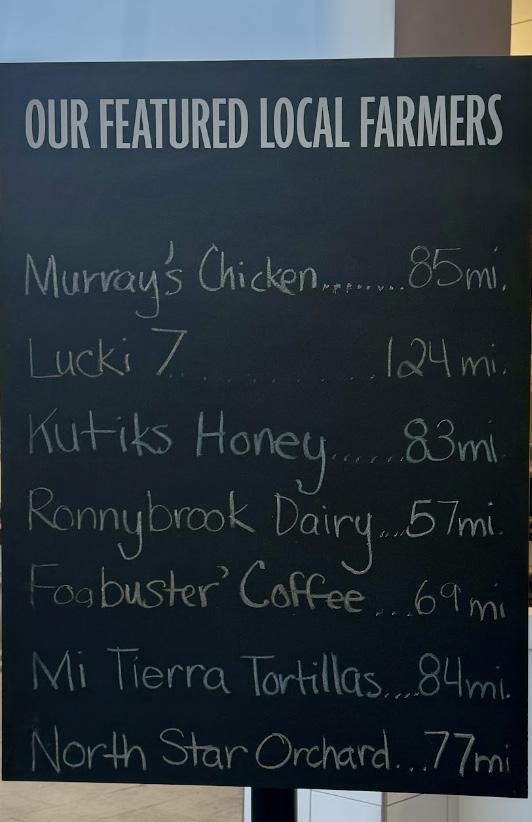 OUR FEATURED LOCAL FARMERS
Murray's Chicken........85mi.
Lucki 7..........124 mi.
Kutiks Honey......83mi
Ronnybrook Dairy...57mi.
Fogbuster' Coffee ....69 mi
Mi Tierra Tortillas....84mi.
North Star Orchard...77mi